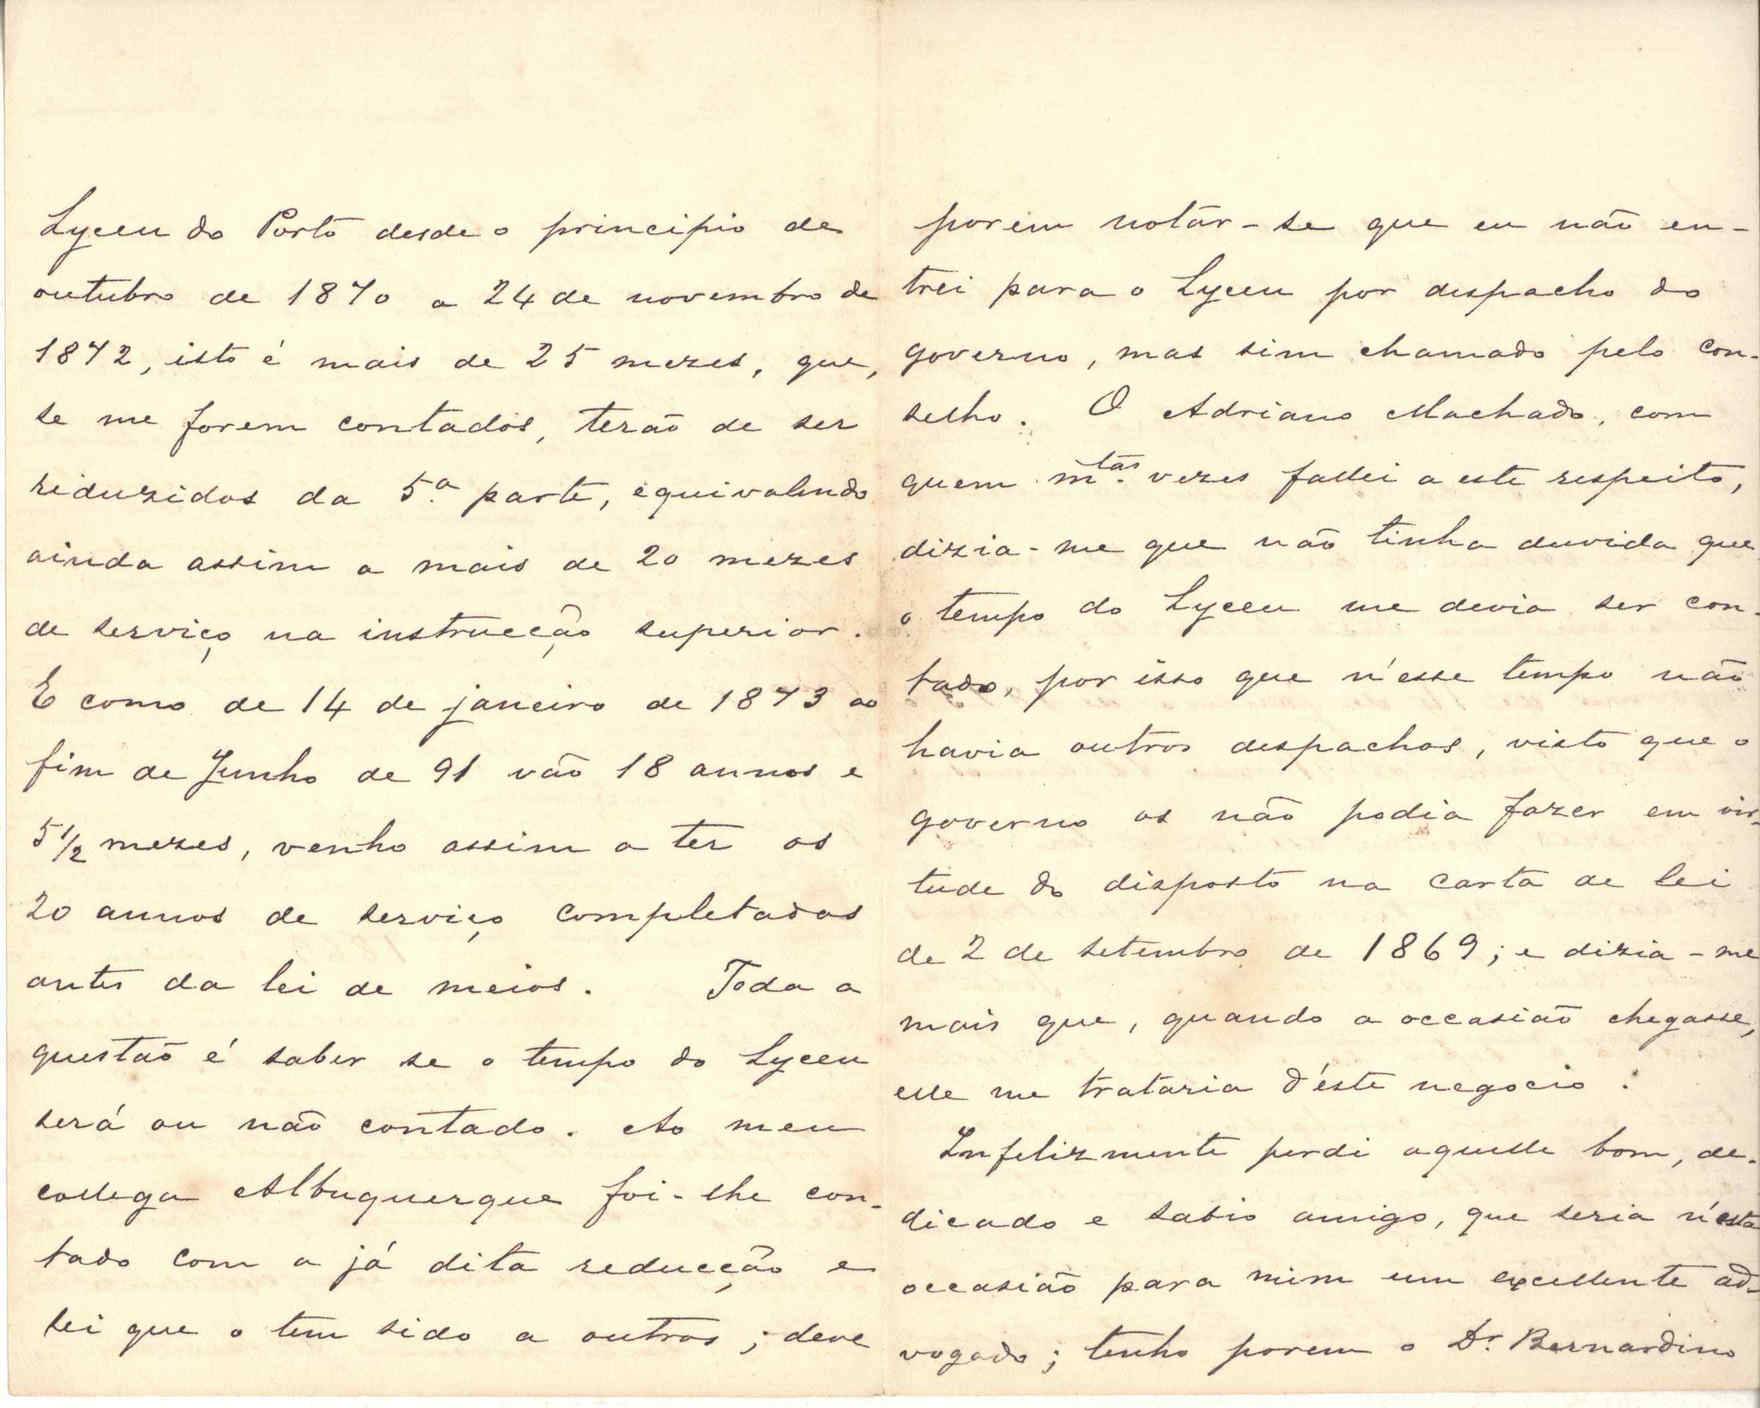 Lyceu do Porto desde o principio de
outubro de 1870 a 24 de novembro de
1872, isto é mais de 25 mezes, que,
se me forem contados, terão de ser
reduzidos da 5.ª parte, equivalendo
ainda assim a mais de 20 mezes
de serviço na instrucção superior.
E como de 14 de janeiro de 1873 ao
fim de Junho de 91 vão 18 annos e
5 1/2 mezes, venho assim a ter os
20 annos de serviço completados
antes da lei de meios. Toda a
questão é saber se o tempo do Lyceu
será ou não contado. Ao meu
collega Albuquerque foi-lhe con-
tado com a já dita reducção e
sei que o tem sido a outros; deve
porem notar-se que eu não en-
trei para o Lyceu por despacho do
governo, mas sim chamado pelo con-
selho. O Adriano Machado, com
quem m.tas vezes fallei a este respeito,
dizia-me que não tinha duvida que
o tempo do Lyceu me devia ser con-
tado, por isso que n'esse tempo não
havia outros despachos, visto que o
governo os não podia fazer em vir-
tude do disposto na carta de lei
de 2 de setembro de 1869; e dizia-me
mais que, quando a occasião chegasse,
elle me trataria d'este negocio.
Infelizmente perdi aquelle bom, de-
dicado e sabio amigo, que seria n'esta
occasião para mim um excellente ad-
vogado; tenho porem o Dr. Bernardino